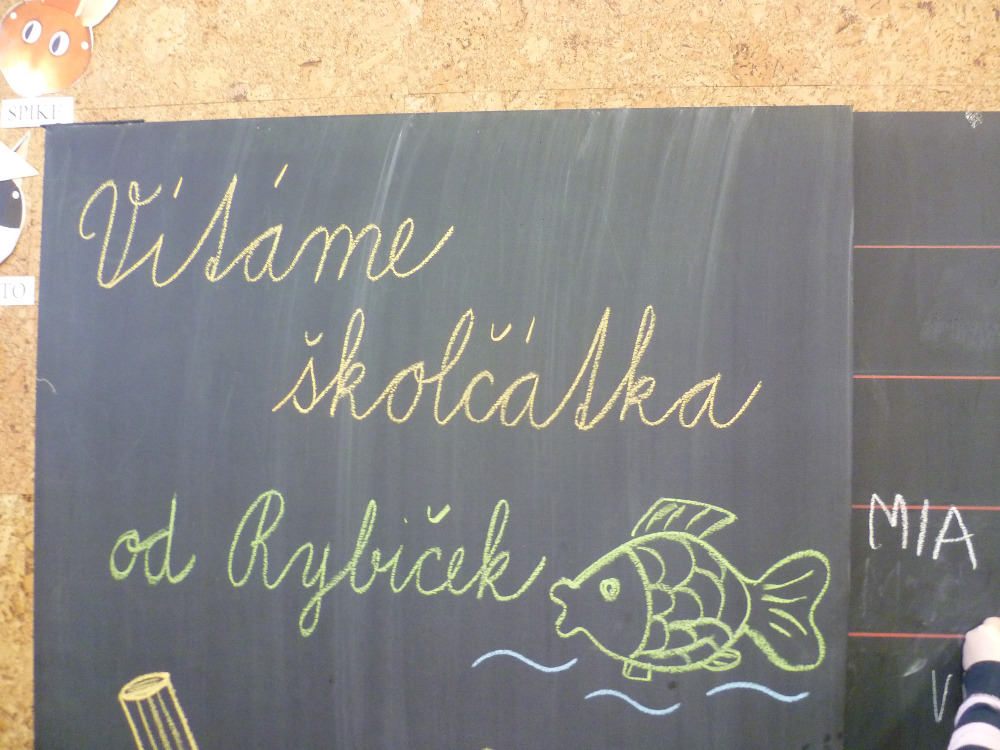 SPIKE
TO
Vítáme
školčátka
od Rybiček
MIA
V